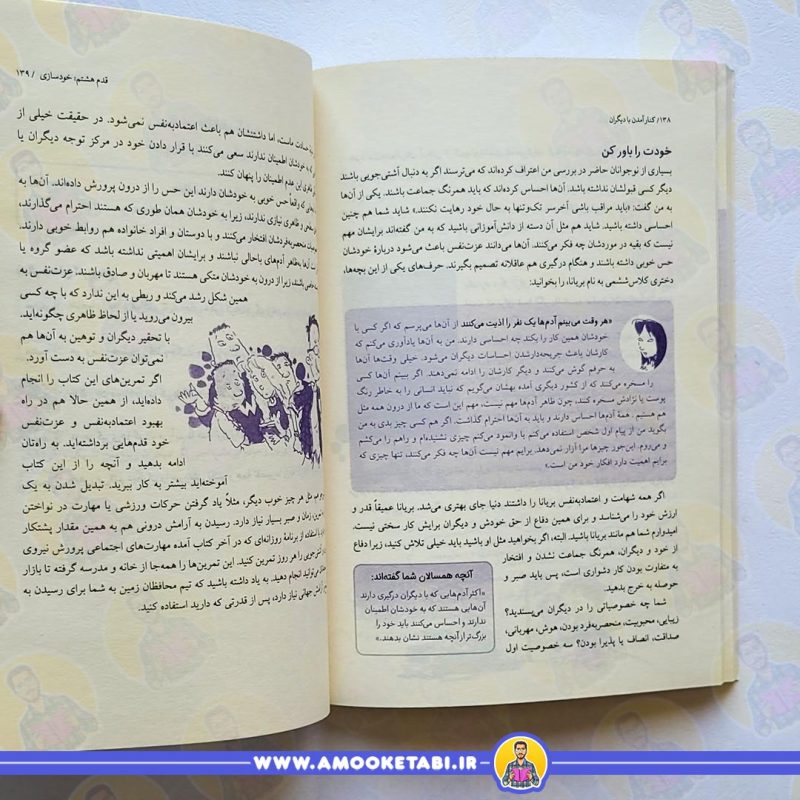 ۱۳۸/ کنار آمدن با دیگران
خودت را باور کن
بسیاری از نوجوانان حاضر در بررسی من اعتراف کرده‌اند که می‌ترسند اگر به دنبال آشتی‌جویی باشند
دیگر کسی قبولشان نداشته باشد. آن‌ها احساس کرده‌اند که باید همرنگ جماعت باشند. یکی از آن‌ها
به من گفت: «باید مراقب باشی آخرسر تک‌وتنها به حال خود رهایت نکنند.» شاید شما هم چنین
احساسی داشته باشید. شاید هم مثل آن دسته از دانش‌آموزانی باشید که به من گفته‌اند برایشان مهم
نیست که بقیه در موردشان چه فکر می‌کنند. آن‌ها می‌دانند عزت‌نفس باعث می‌شود دربارهٔ خودشان
حس خوبی داشته باشند و هنگام درگیری هم عاقلانه تصمیم بگیرند. حرف‌های یکی از این بچه‌ها،
دختری کلاس‌ششمی به نام بریانا، را بخوانید:
«هر وقت می‌بینم آدم‌ها یک نفر را اذیت می‌کنند از آن‌ها می‌پرسم که اگر کسی با
خودشان همین کار را بکند چه احساسی دارند. من به آن‌ها یادآوری می‌کنم که
کارشان باعث جریحه‌دارشدن احساسات دیگران می‌شود. خیلی وقت‌ها آن‌ها
به حرفم گوش می‌کنند و دیگر کارشان را ادامه نمی‌دهند. اگر ببینم آن‌ها کسی
را مسخره می‌کنند که از کشور دیگری آمده بهشان می‌گویم که نباید انسانی را به خاطر رنگ
پوست یا نژادش مسخره کنند، چون ظاهر آدم‌ها مهم نیست، مهم این است که ما از درون همه مثل
هم هستیم. همهٔ آدم‌ها احساس دارند و باید به آن‌ها احترام گذاشت. اگر هم کسی چیز بدی به من
بگوید من از پیام اول شخص استفاده می‌کنم یا وانمود می‌کنم چیزی نشنیده‌ام و راهم را می‌کشم
و می‌روم. این‌جور چیزها مرا آزار نمی‌دهد. برایم مهم نیست که آن‌ها چه فکر می‌کنند، تنها چیزی که
برایم اهمیت دارد افکار خود من است.»
اگر همه شهامت و اعتمادبه‌نفس بریانا را داشتند دنیا جای بهتری می‌شد. بریانا عمیقاً قدر و
ارزش خود را می‌شناسد و برای همین دفاع از حق خودش و دیگران برایش کار سختی نیست.
امیدوارم شما هم مانند بریانا باشید. البته، اگر بخواهید مثل او باشید باید خیلی تلاش کنید، زیرا دفاع
از خود و دیگران، همرنگ جماعت نشدن و افتخار
به متفاوت بودن کار دشواری است، پس باید صبر و
حوصله به خرج بدهید.
شما چه خصوصیاتی را در دیگران می‌پسندید؟
زیبایی، محبوبیت، منحصربه‌فرد بودن، هوش، مهربانی،
صداقت، انصاف یا پذیرا بودن؟ سه خصوصیت اول
آنچه همسالان شما گفته‌اند:
«اکثر آدم‌هایی که با دیگران درگیری دارند
آن‌هایی هستند که به خودشان اطمینان
ندارند و احساس می‌کنند باید خود را
بزرگ‌تر از آنچه هستند نشان بدهند.»
قدم هشتم: خودسازی / ۱۳۹
ماست، اما داشتنشان هم باعث اعتمادبه‌نفس نمی‌شود. در حقیقت خیلی از
که به خودشان اطمینان ندارند سعی می‌کنند با قرار دادن خود در مرکز توجه دیگران یا
ظاهری این عدم اطمینان را پنهان کنند.
که واقعاً حس خوبی به خودشان دارند این حس را از درون پرورش داده‌اند. آن‌ها به
و ظاهری نیازی ندارند، زیرا به خودشان همان طوری که هستند احترام می‌گذارند،
منحصربه‌فردشان افتخار می‌کنند و با دوستان و افراد خانواده هم روابط خوبی دارند.
آن‌ها به‌ظاهر آدم‌های باحالی نباشند و برایشان اهمیتی نداشته باشد که عضو گروه یا
باشند، زیرا از درون به خودشان متکی هستند تا مهربان و صادق باشند. عزت‌نفس به
همین شکل رشد می‌کند و ربطی به این ندارد که با چه کسی
بیرون می‌روید یا از لحاظ ظاهری چگونه‌اید.
با تحقیر دیگران و توهین به آن‌ها هم
نمی‌توان عزت‌نفس به دست آورد.
اگر تمرین‌های این کتاب را انجام
داده‌اید، از همین حالا هم در راه
بهبود اعتمادبه‌نفس و عزت‌نفس
خود قدم‌هایی برداشته‌اید. به راه‌تان
ادامه بدهید و آنچه را از این کتاب
آموخته‌اید بیشتر به کار ببرید. تبدیل شدن به یک
مثل هر چیز خوب دیگر، مثلاً یاد گرفتن حرکات ورزشی یا مهارت در نواختن
زمان و صبر بسیار نیاز دارد. رسیدن به آرامش درونی هم به همین مقدار پشتکار
با استفاده از برنامهٔ روزانه‌ای که در آخر کتاب آمده مهارت‌های اجتماعی پرورش نیروی
را هر روز تمرین کنید. این تمرین‌ها را همه‌جا از خانه و مدرسه گرفته تا بازار
می‌توانید انجام دهید. به یاد داشته باشید که تیم محافظان زمین به شما برای رسیدن به
جهانی نیاز دارد، پس از قدرتی که دارید استفاده کنید.
WWW.AMOOKETABI.IR